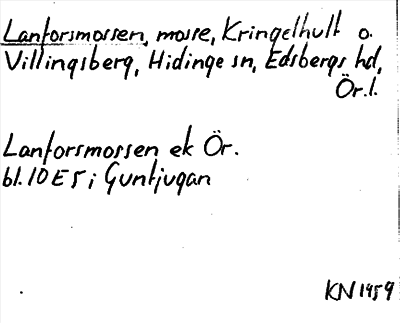 Lanforsmossen, mosse, Kringelhult o.
Villingsberg, Hidinge sn, Edsbergs hd,
Ör.l.
Lanforsmossen ek Ör.
bl. 10 E 5 i Guntjugan
KN 1959